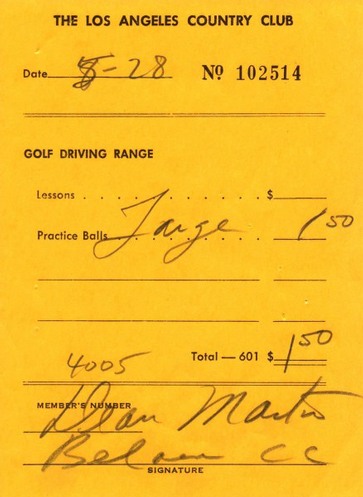 THE LOS ANGELES COUNTRY CLUB
Date 8-28 Nº 102514
GOLF DRIVING RANGE
Lessons . . . . . . . . . . . . . $
Practice Balls Large 1 50
Total — 601 $ 1 50
4005
MEMBER'S NUMBER
Dean Martin
Belair CC
SIGNATURE